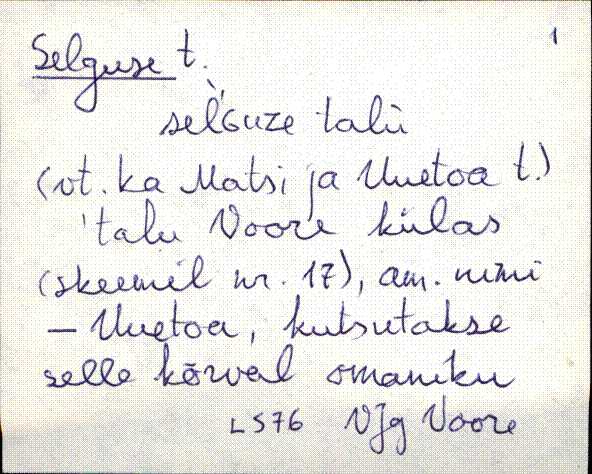 Selguse t.
1
sel'guze talu
(vt. ka Matsi ja Uuetoa t.)
'talu Voore külas
(skeemil nr. 17), am. nimi
— Uuetoa, kutsutakse
selle kõrval omaniku
LS76 VJg Voore